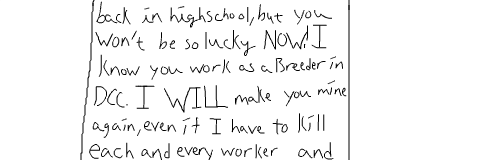 back in highschool, but you
won't be so lucky NOW! I
know you work as a Breeder in
DCC. I WILL make you mine
again, even if I have to kill
each and every worker and